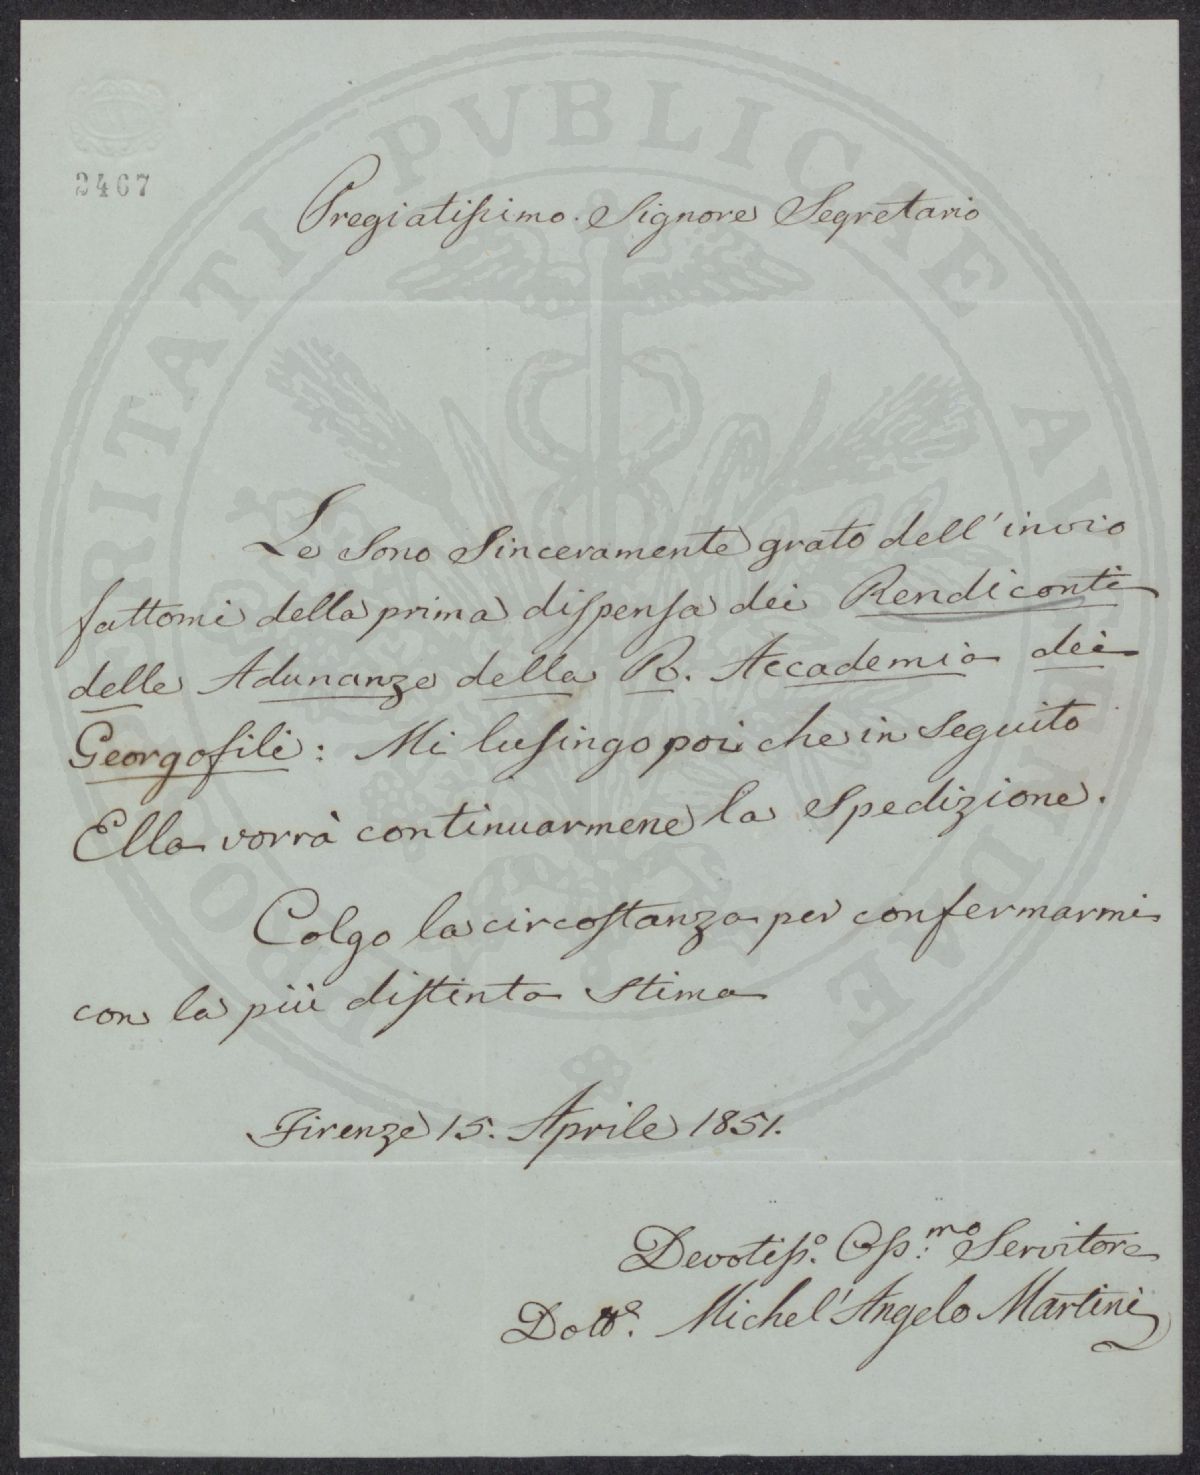 PROSPERITATI PVBLICAE AVGENDAE
2467
Pregiatissimo Signore Segretario
Le sono sinceramente grato dell'invio
fattomi della prima dispensa dei Rendiconti
delle Adunanze della R. Accademia dei
Georgofili: Mi lusingo poi che in seguito
Ella vorrà continuarmene la spedizione.
Colgo la circostanza per confermarmi
con la più distinta stima
Firenze 15. Aprile 1851.
Devotiss.º Oss.mo Servitore
Dott.e Michel'Angelo Martini